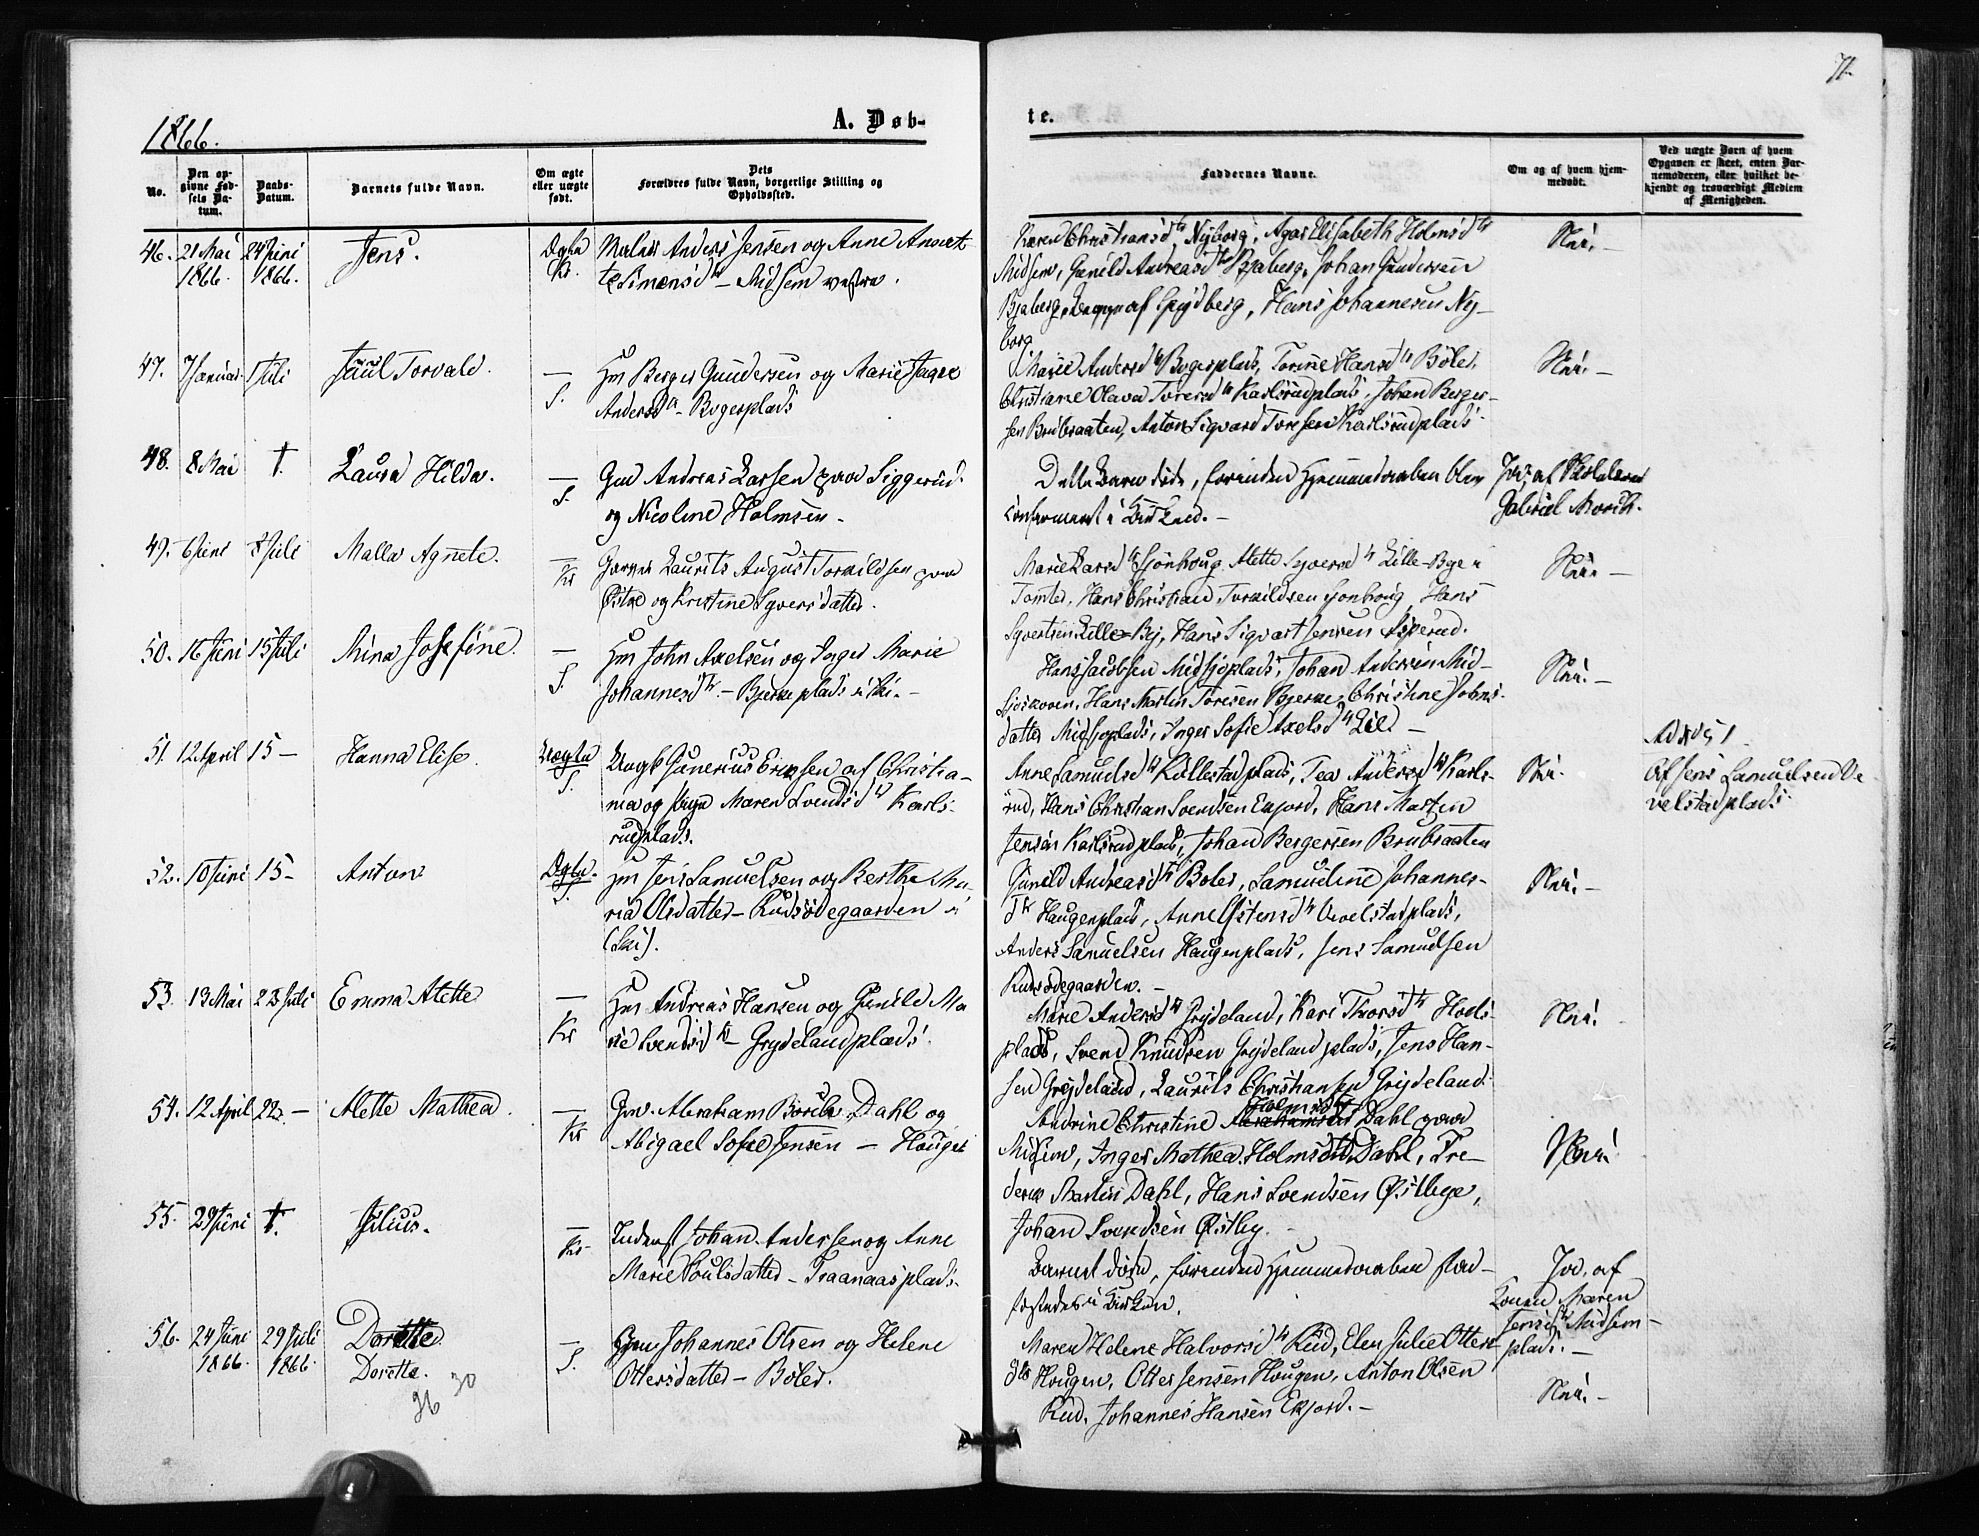 71.
1866.
A. Døb-
te.
No.
Den op-
givne Fød-
sels Da-
tum.
Daabs-
Datum.
Barnets fulde Navn.
Om ægte
eller uægte
født.
Dets
Forældres fulde Navn, borgerlige Stilling og
Opholdssted.
Faddernes Navne.
Om og af hvem hjem-
medøbt.
Ved uægte Børn af hvem
Opgaven er skeet, enten Bar-
nemoderen, eller hvilket be-
kjendt og troværdigt Medlem
af Menigheden.
46. 21 Mai 24 Juni Jens. Ægte Anders Jensen og Anne
1866. 1866. Kr. Simensd tr – Midsem vestre.
Karen Christiansd tr Nyborg, Elisabeth Holmsd tr
Midsem, Gunild Andreasd tr Bjaberg, Johan Gundersen
Bjaberg, af Spydberg, Hans Johannesen Ny-
borg
47. 7 Januar 1 Juli Juul Torvald. — Hm Berger Gundersen og Marie
S. Andersd tr – Bogerplads
Marie Andersd tr Bogerplads, Torine Hansd tr Bøler,
Christiane Olava Toresd tr Karlsrudplads, Johan Berger-
sen Brubraaten, Anton Sigvard Toresen Karlsrudplads
48. 8 Mai †. Laura Hilda. — Gm Andreas Larsen Siggerud
S. og Nicoline Holmsen –
Dette Barn døde, forinden Hjemmedaaben blev
confirmeret i Kirken. –
Jo, af Skolelærer
Gabriel Morch.
49. 6 Juni 8 Juli Malla Agnete. — Laurits August Torkildsen
Kr Østre og Kristine Syversdatter.
Marie Larsd tr Sjonhoug, Alette Syversd tr Lille-Bye i
Tomter, Hans Christian Torkildsen Sonhoug, Hans
Syvertsen Lille-By, Hans Sigvart Jensen
50. 16 Juni 15 Juli Mina Josefine. — Hm John Axelsen og Inger Marie
S. Johannesd tr – Bjerkeplads i Ski. –
Hans Jacobsen Midsjøplads, Johan Andersen Mid-
sjøskoven, Hans Martin Toresen Bjerke, Christine Johns-
datter Midsjøplads, Inger Sofie Axelsd tr –
51. 12 April 15 – Hanna Elise. Uægte Ungk Gunerius Eriksen af Christia-
S. nia og Pige Maren Svendsd tr Karls-
rudplads.
Anne Samuelsd tr Kollestadplads, Tea Andersd tr Karls-
rud, Hans Christian Svendsen Ekjord, Hans Martin
Jensen Karlsrudplads, Johan Bergersen Brubraaten
Ad No 51
Af Jens Samuelsen Ve-
velstadplads.
52. 10 Juni 15 – Anton Ægte. Hm Jens Samuelsen og Berthe Ma-
S. ria Olsdatter – Rudsødegaarden i
(Ski).
Gunild Andreasd tr Boler, Samueline Johannes-
d tr Haugenplads, Anne Østensd tr Vevelstadplads,
Anders Samuelsen Haugenplads, Jens Samuelsen
Rudsødegaarden. –
53. 13 Mai 23 Juli Emma Alette — Hm Andreas Hansen og Gunild Ma-
Kr rie Svendsd tr – Grydelandplads.
Marie Andersd tr Grydeland, Kari Thorsd tr Hods-
plads, Svend Knudsen Grydelandplads, Jens Han-
sen Grydeland, Laurits Christiansen Grydeland.
54. 12 April 22. – Alette Mathea. — Gm. Abraham Dahl og
Kr Abigael Sofie Jensen – Houger
Andrine Christine Holmsd tr Dahl
Midsem, Inger Mathea Holmsd tr Dahl, Fre-
derik Martin Dahl, Hans Svendsen Østbye,
Johan Svendsen Østby. –
55. 29 Juni †. Julius. — Inderst Johan Andersen og Anne
Kr Marie Poulsdatter – Traanaasplads.
Barnet døde, forinden Hjemmedaaben stad-
fæstedes i Kirken.
Jo, af
Konen Maren
Jensd tr Midsem-
plads. –
56. 24 Juni 29 Juli Dorette. — Gm Johannes Olsen og Helene
1866. 1866. Dorette. S. Ottersdatter – Bøler.
Maren Helene Halvorsd tr Rud, Elen Julie Otters-
d tr Hougen, Otter Jensen Hougen, Anton Olsen
Rud, Johannes Hansen Ekjord. –
30